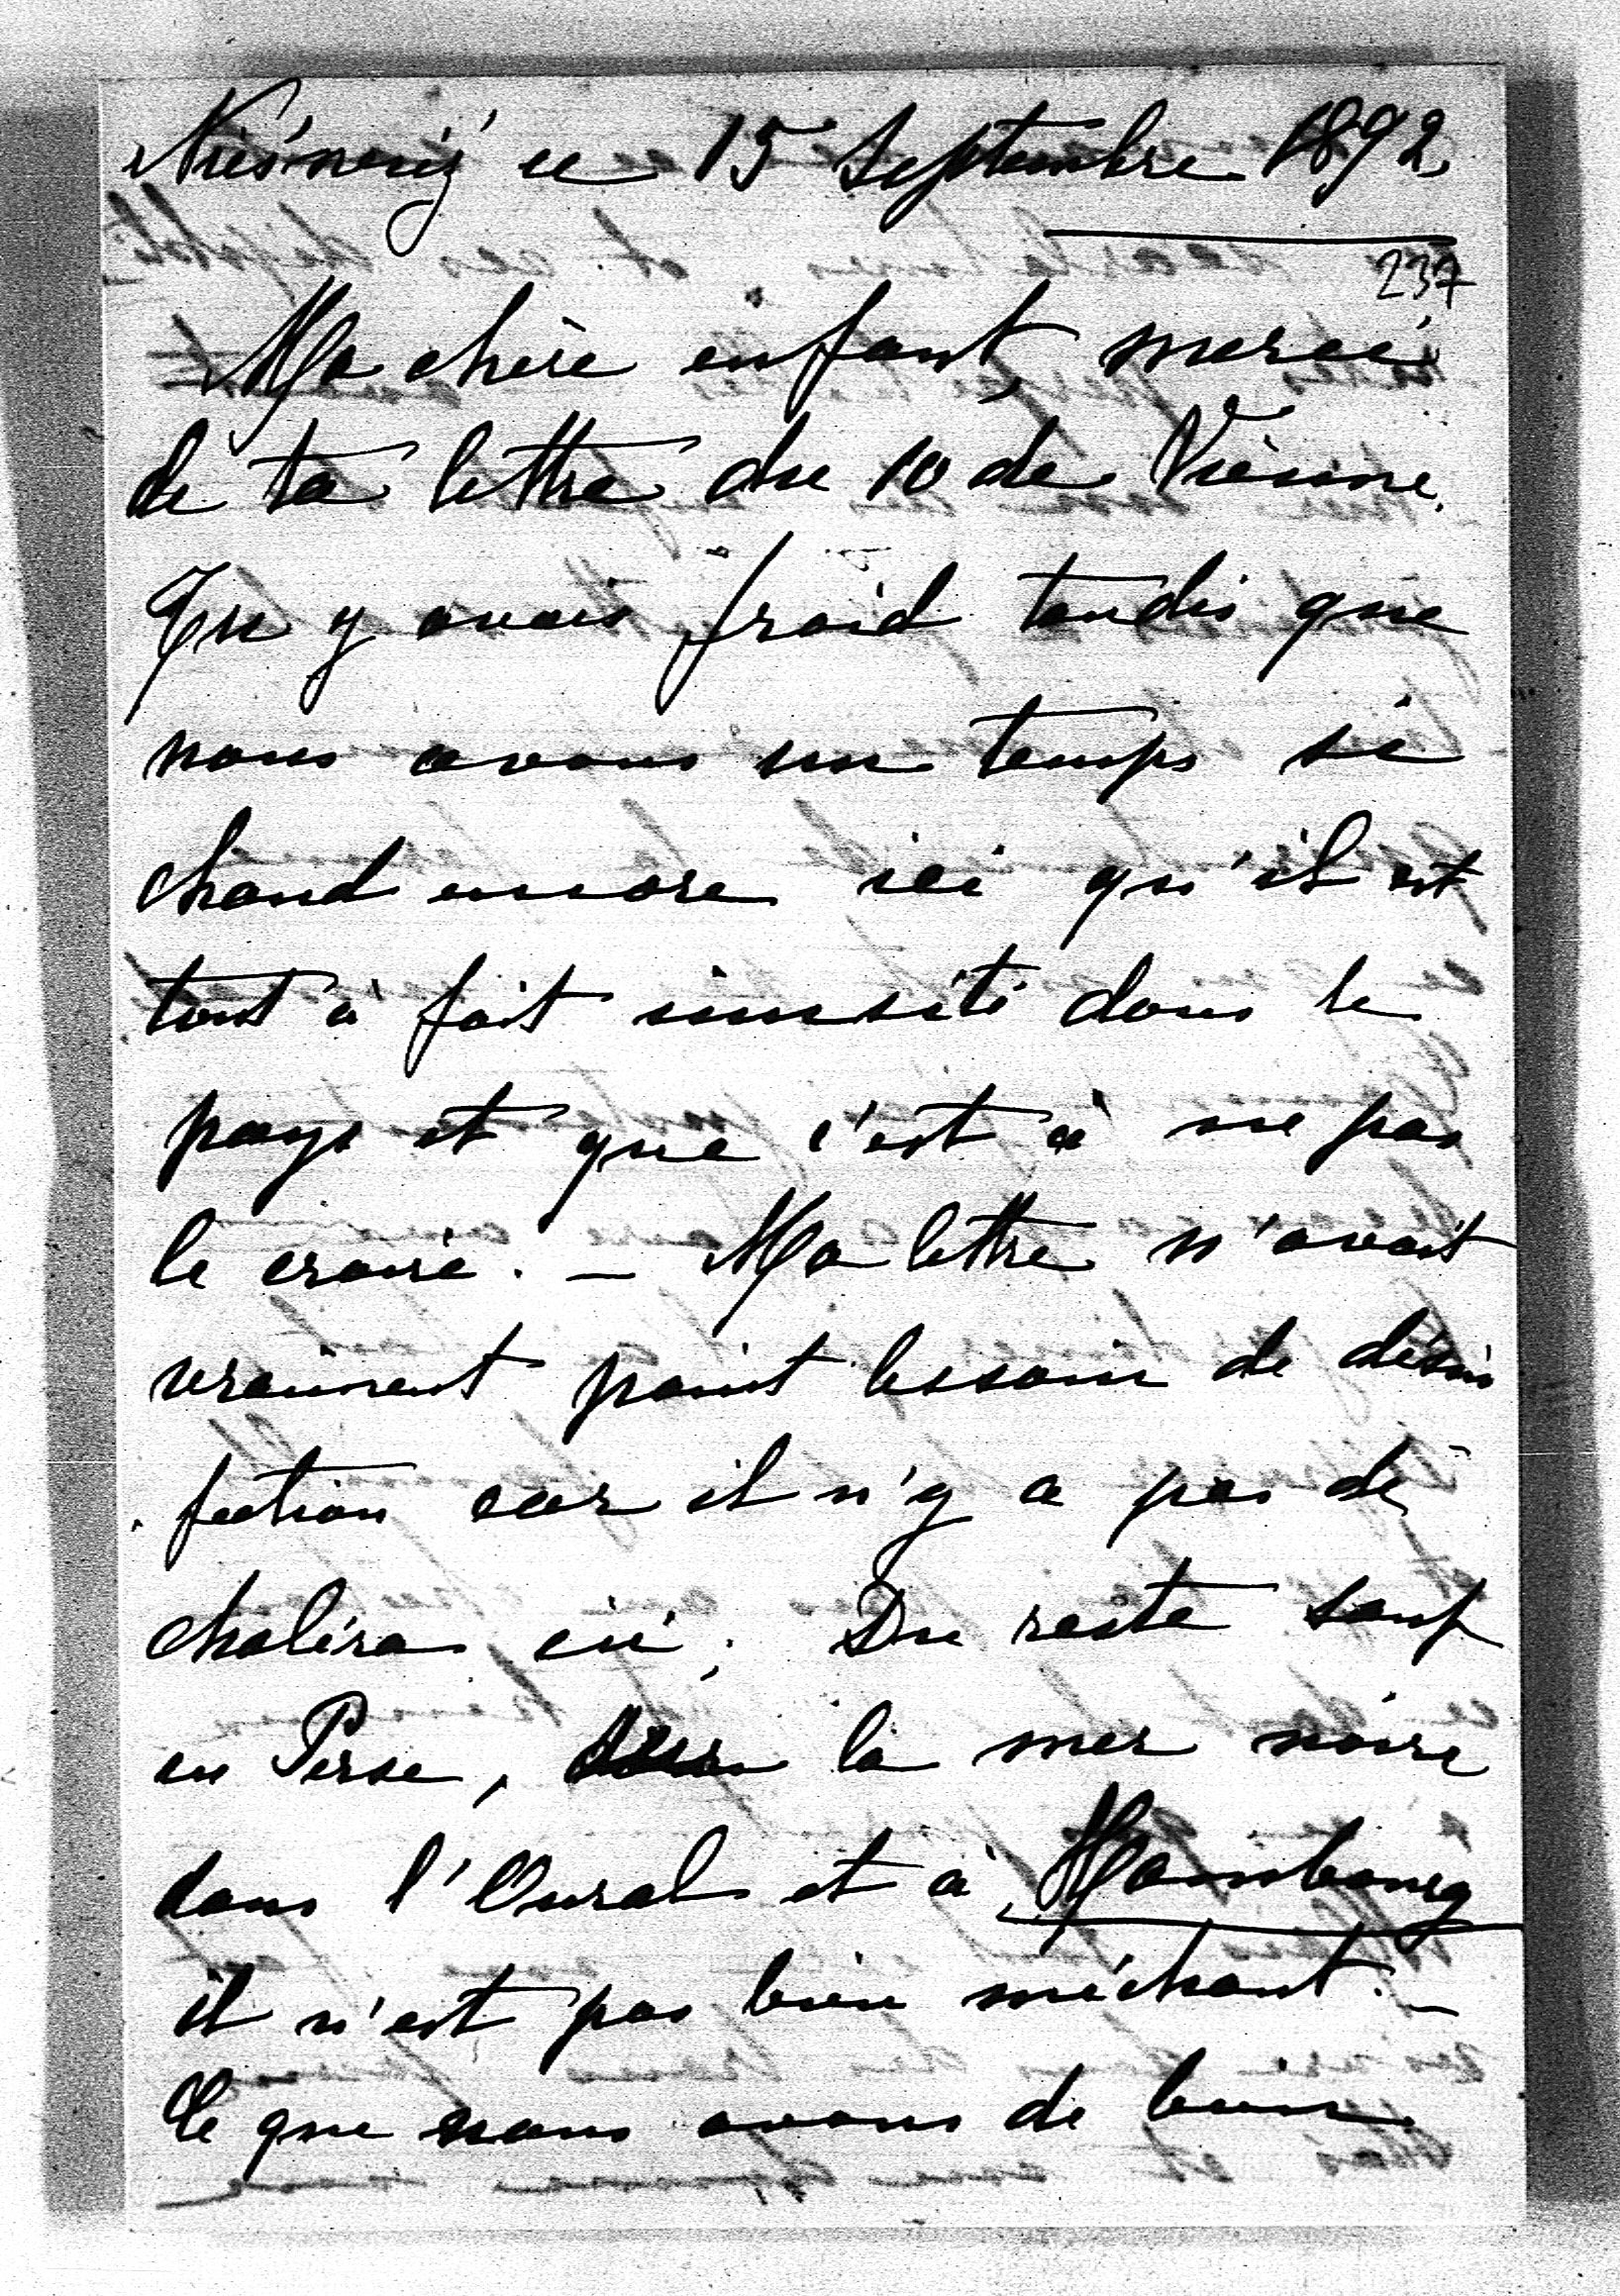 Nieśwież ce 15 Septembre 1892
237
Ma chère enfant, merci
de ta lettre du 10 de Vienne.
Tu y avais froid tandis que
nous avons un temps si
chaud encore ici qu'il est
tout à fait inusité dans le
pays et que c'est à ne pas
le croire. — Ma lettre n'avait
vraiment point besoin de désin
fection car il n'y a pas de
choléra ici; Du reste sauf
en Perse, la mer noire
dans l'Oural et à Hambourg
il n'est pas bien méchant. —
Ce que nous avons de bien